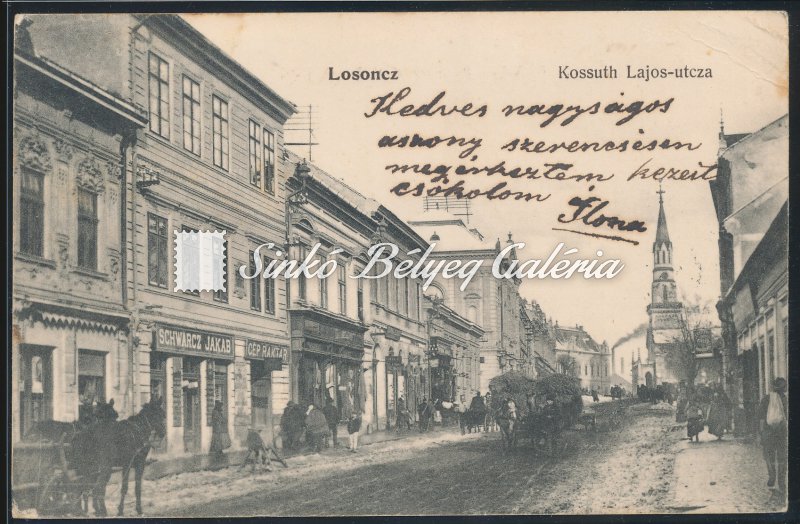 Losoncz
Kossuth Lajos-utcza
Kedves nagyságos
asszony szerencsésen
megérkeztem kezeit
csókolom
Ilona
Sinkó Bélyeg Galéria
SCHWARCZ JAKAB
GÉP RAKTÁR